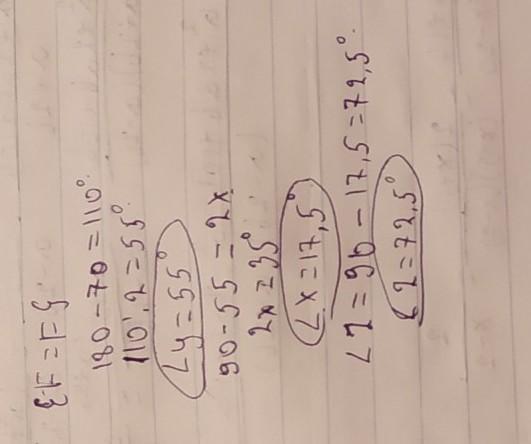 EF = FG
180 - 70 = 110°
110 : 2 = 55°
∠y = 55°
90 - 55 = 2x
2x = 35°
∠x = 17,5°
∠z = 90 - 17,5 = 72,5°
∠z = 72,5°